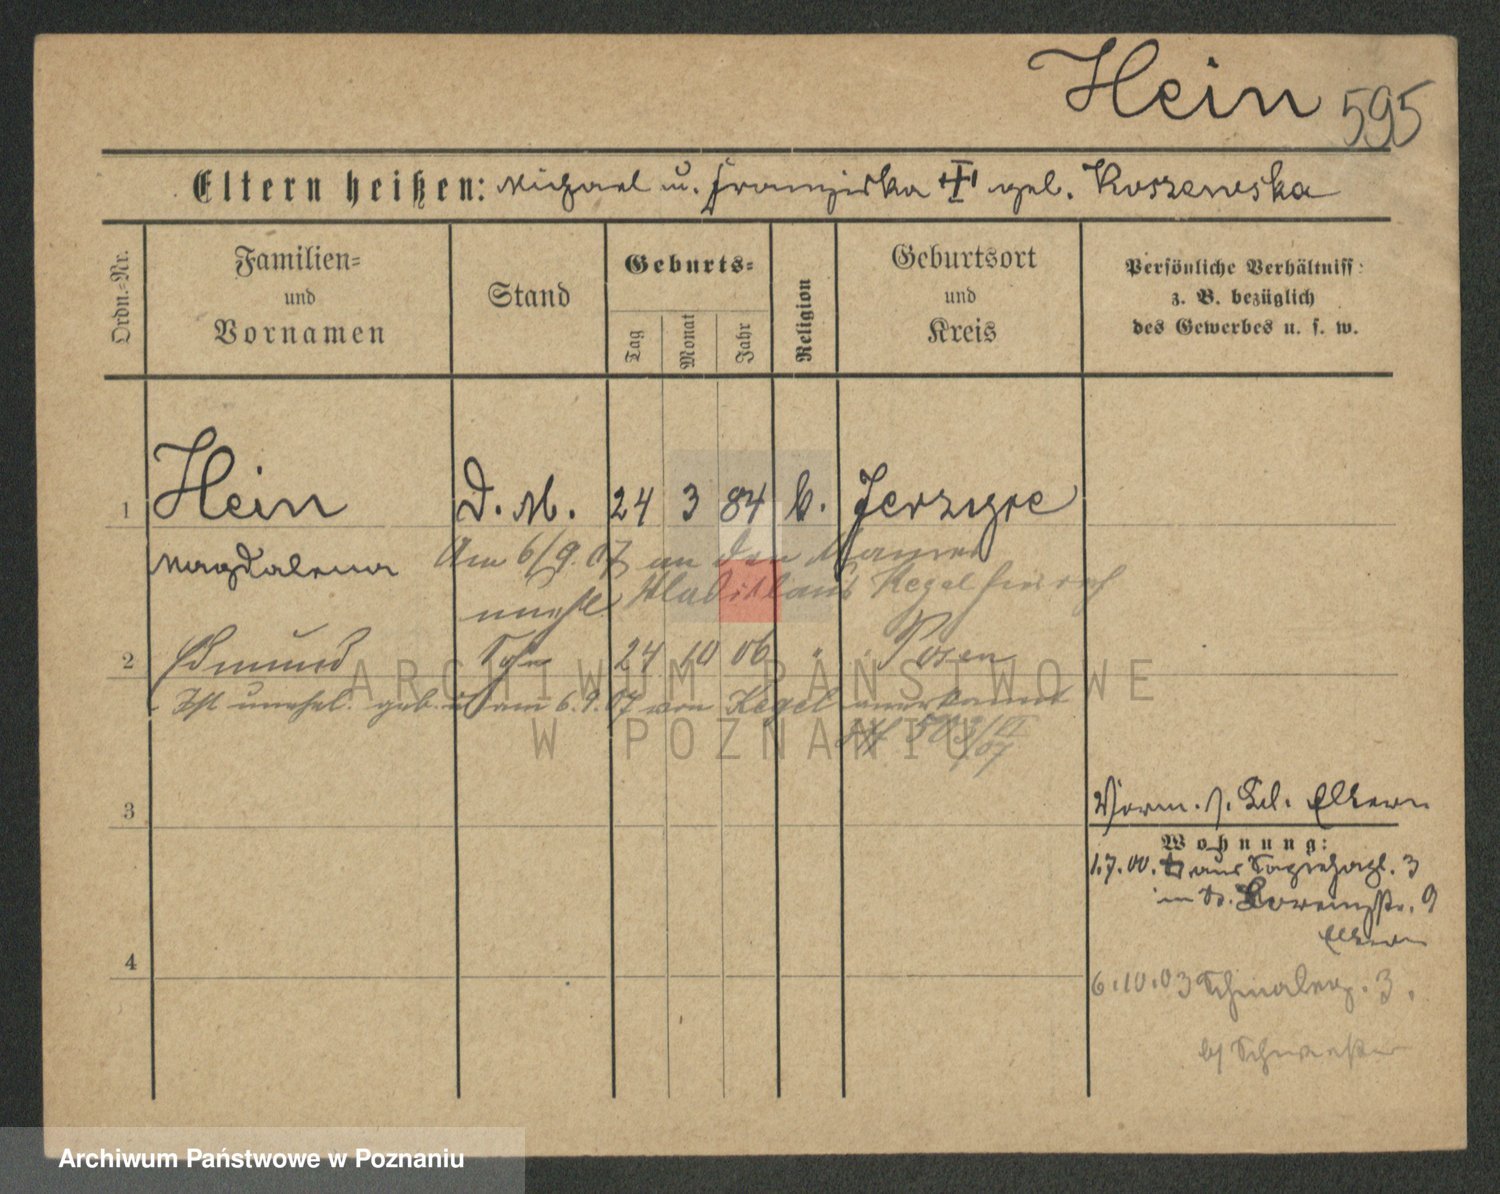 Hein 595
Eltern heißen: Michael u. Franziska gel. Koszewska
Ordn.-Nr.
Familien-
und
Vornamen
Stand
Geburts-
Tag
Monat
Jahr
Religion
Geburtsort
und
Kreis
Persönliche Verhältniss
z. B. bezüglich
des Gewerbes u. s. w.
1 Hein D. M. 24 3 84 k. Jerzyce
Magdalena Am 6/9.07 an den
Wladislaus Kegel
2 Edmund Sohn 24 10 06 " Posen
Ist unehel. geb. u. am 6.9.07 von Kegel anerkannt
3
Vorm. s. Bl. Eltern
Wohnung:
1.7.00. aus 3
in Lorenzstr. 9
Eltern
4
6.10.03 3.
b/ Schwester
ARCHIWUM PAŃSTWOWE
W POZNANIU
Archiwum Państwowe w Poznaniu